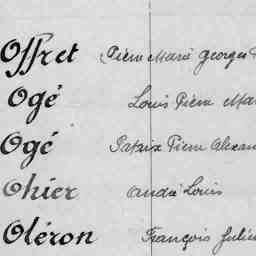 Offret Pierre Marie Georges
Ogé Louis Pierre Mar
Ogé Pierre Alexan
Ohier André Louis
Oléron François Julien